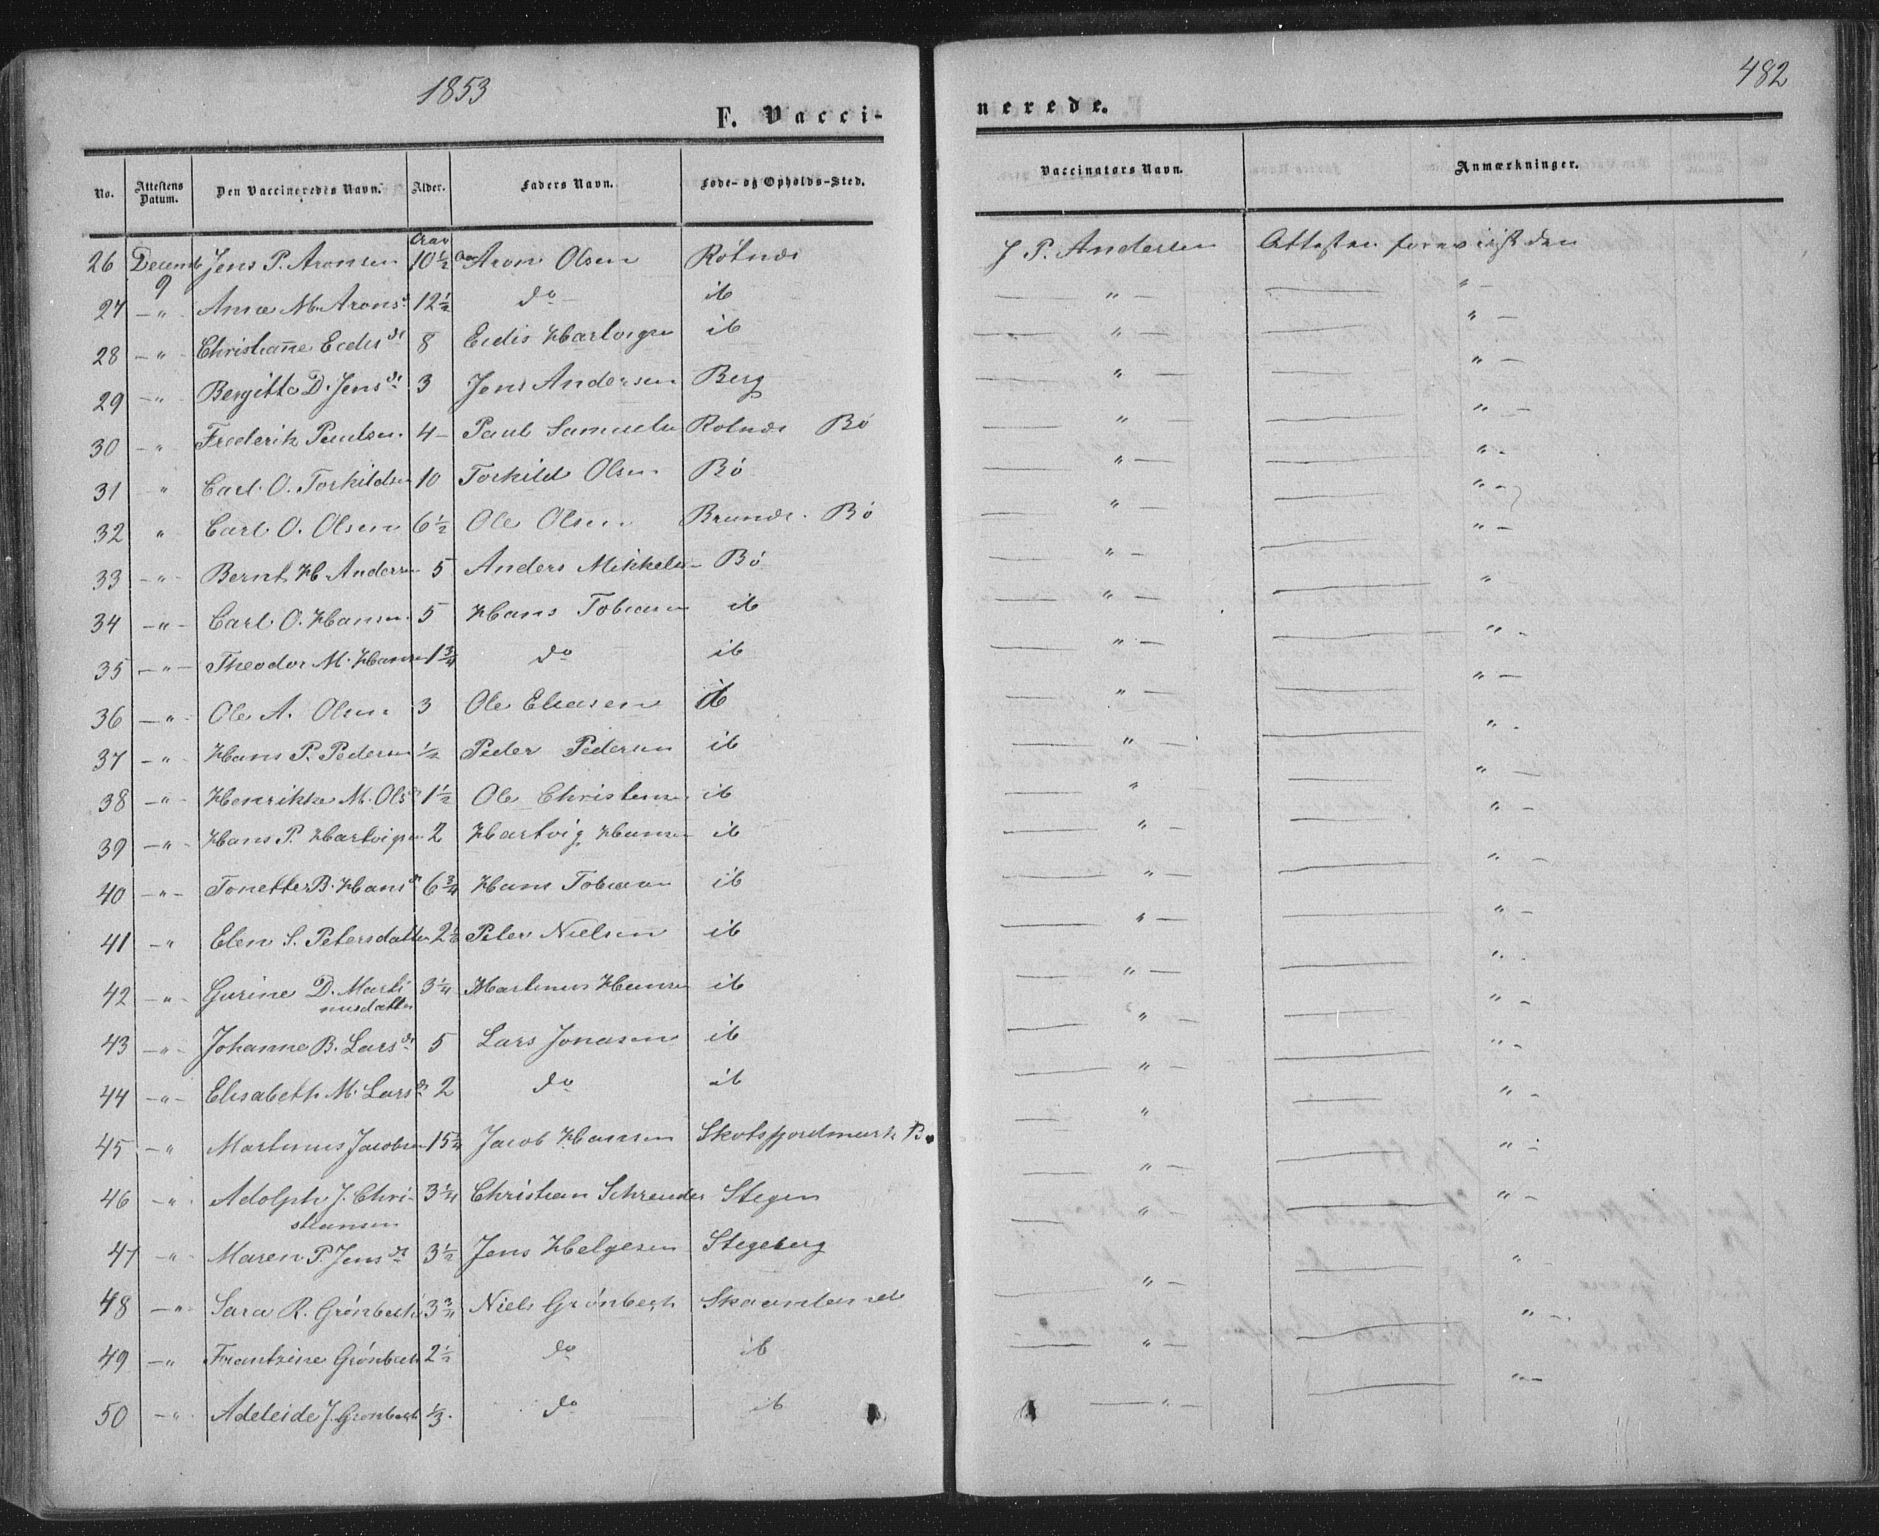 1853
482
F. Vacci-
nerede.
No. Attestens Datum. Den Vaccineredes Navn. Alder. Faders Navn. Føde- og Opholds-Sted. Vaccinators Navn. Anmærkninger.
26 Decemb 9 Jens P. Aronsen Aar 10½ Aron Olsen Rotnæs J. P. Andersen Attesten foreviist den
27 —"— Anne M. Aronsd 12½ do ib —"— —"—
28 —"— Christianne Eedis dr 8 Eedis Hartvigsen ib —"— —"—
29 —"— Bergitte D. Jens dr 3 Jens Andersen Berg —"— —"—
30 " Frederik Paulsen 4 — Paul Samuels Rotnæs Bø —"— —"—
31 " Carl O. Torkildsen 10 Torkild Olsen Bø —"— —"—
32 " Carl O. Olsen 6½ Ole Olsen Brunæs. Bø —"— —"—
33 —"— Bernt H. Anders 5 Anders Mikkels — Bø —"— —"—
34 —"— Carl O. Hansen 5 Hans Tobiasen ib —"— —"—
35 —"— Theodor M. Hansen 1¾ do ib —"— —"—
36 —"— Ole A. Olsen 3 Ole Eliasen ib —"— —"—
37 —"— Hans P. Pedersen ½ Peder Pedersen ib —"— —"—
38 —"— Henrikke M. Ols d 1½ Ole Christens ib —"— —"—
39 —"— Hans P. Hartvigsen 2 Hartvig Hansen ib —"— —"—
40 —"— Tonette B. Hans dr 6¾ Hans Tobiasen ib —"— —"—
41 —"— Elen S. Petersdatter 2 Peter Nielsen ib —"— —"—
42 —"— Gurine D. Marti
nusdatter 3¼ Martinus Hansen ib —"— —"—
43 —"— Johanna B. Lars dr 5 Lars Jonasen ib —"— —"—
44 —"— Elisabeth M. Lars dr 2 do ib —"— —"—
45 —"— Martinus Jacobsen 15¼ Jacob Hansen Skotsfjordmark B. —"— —"—
46 —"— Adolph J. Chri-
stiansen 3¼ Christian Schrender Stegen —"— —"—
47 —"— Maren P. Jens dr 3½ Jens Helgesen Stegeberg —"— —"—
48 —"— Sara R. Grønbech 3¾ Niels Grønbech Skaanland —"— —"—
49 —"— Frantzine Grønbech 2½ do ib —"— —"—
50 —"— Adeleide J. Grønbech ⅓. do ib —"— —"—